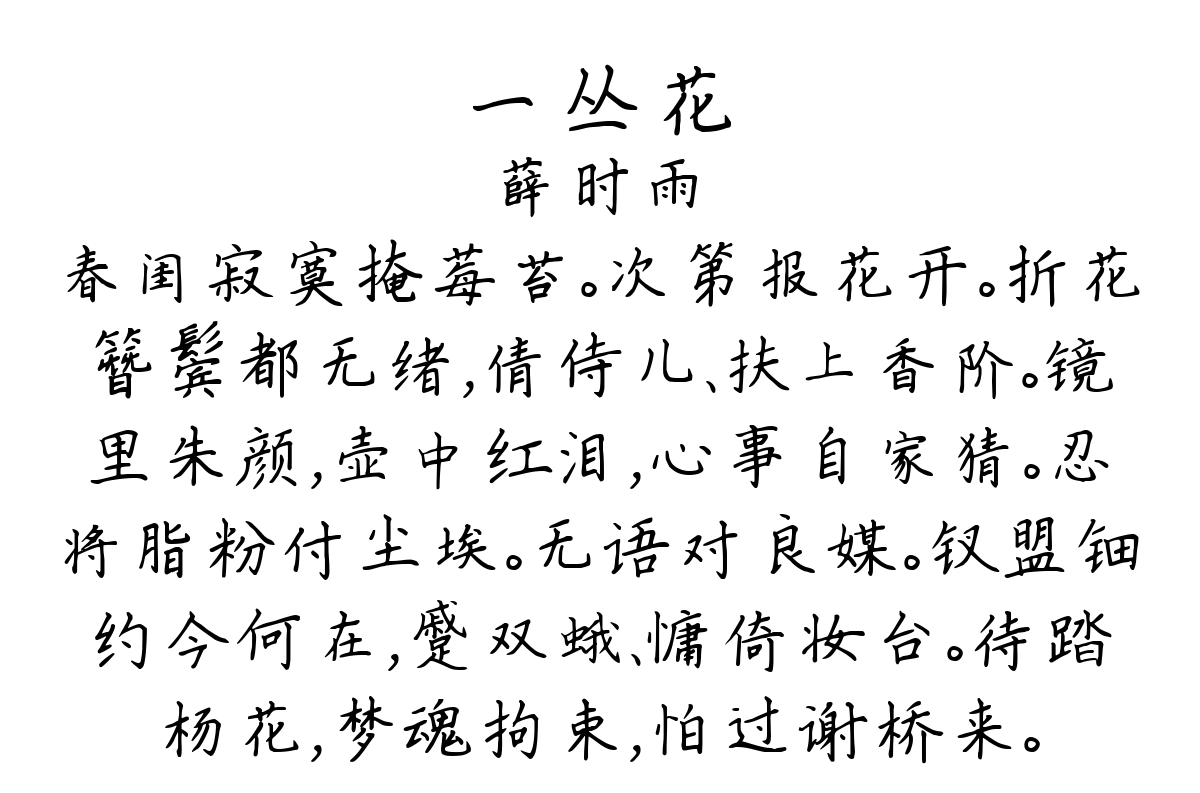 一丛花
薛时雨
春闺寂寞掩莓苔。次第报花开。折花
簪鬓都无绪,倩侍儿、扶上香阶。镜
里朱颜,壶中红泪,心事自家猜。忍
将脂粉付尘埃。无语对良媒。钗盟钿
约今何在,蹙双蛾、慵倚妆台。待踏
杨花,梦魂拘束,怕过谢桥来。